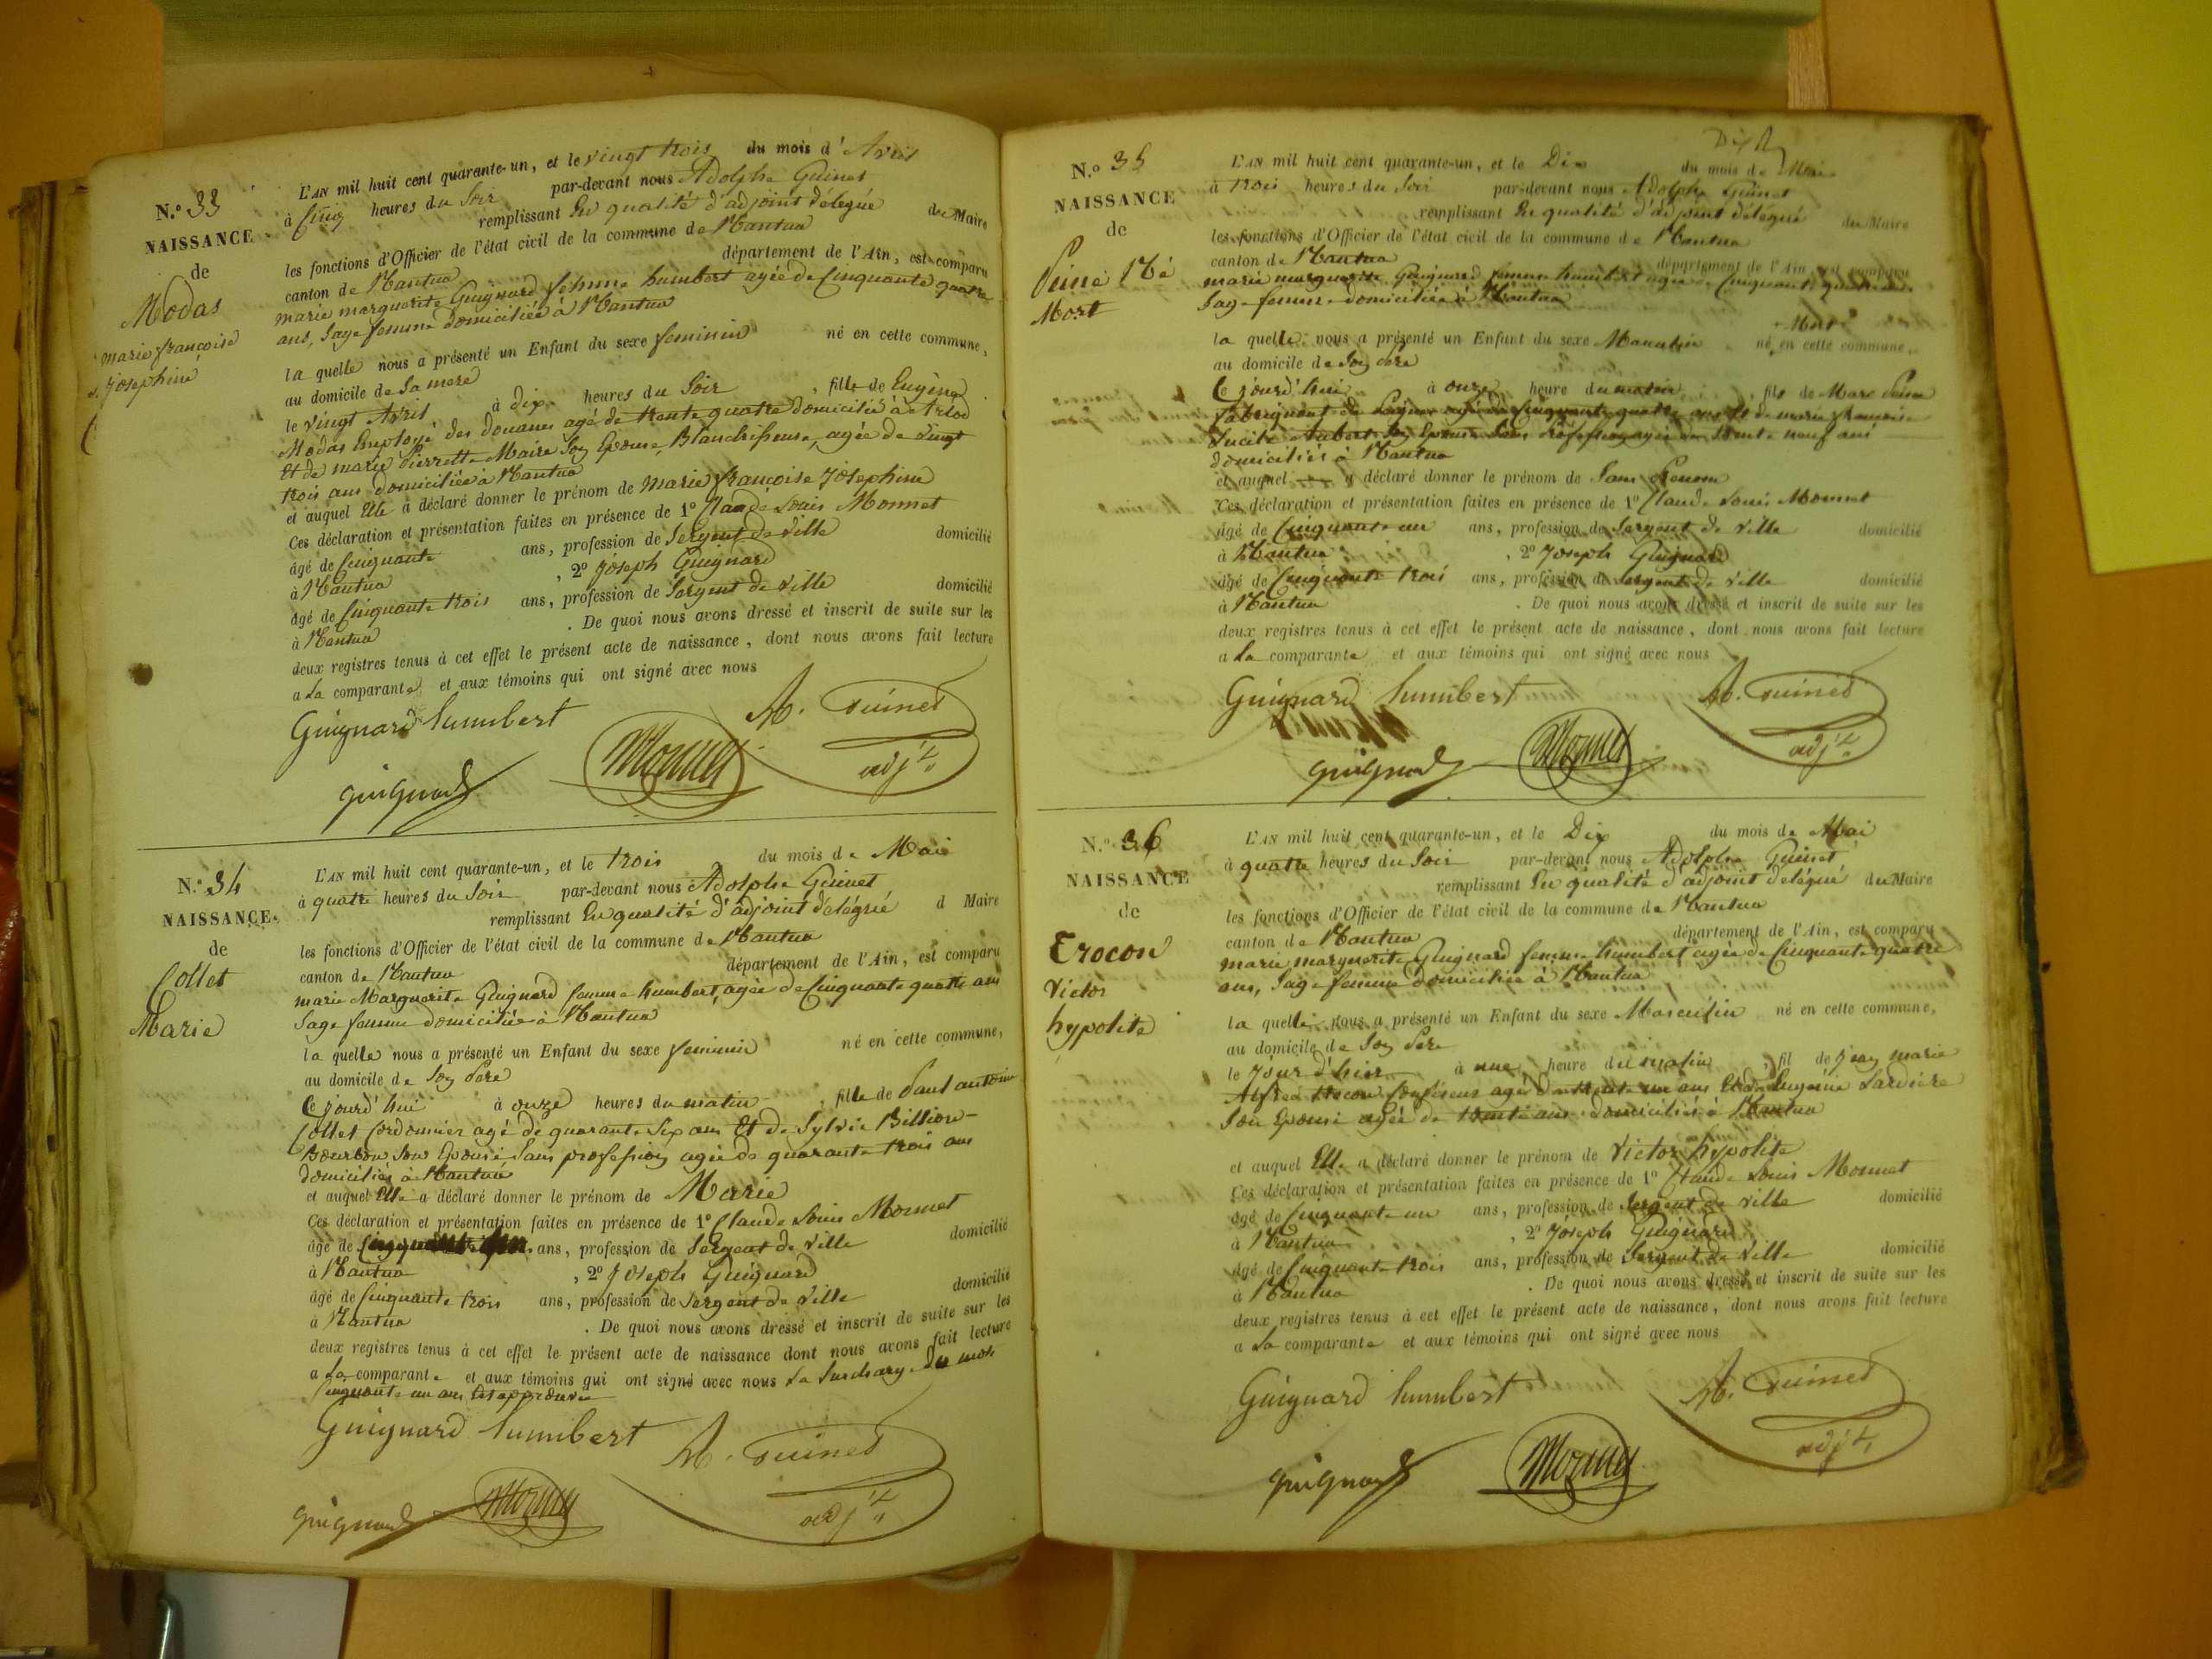 N.o 33
NAISSANCE
de
Modas
marie françoise
Josephine
L'AN mil huit cent quarante-un, et le vingt trois du mois d' Avril
à Cinq heures du Soir par-devant nous Adolphe Guinet
remplissant En qualité d'adjoint délégué du Maire
les fonctions d'Officier de l'état civil de la commune de Nantua
canton de Nantua département de l'Ain, est comparu
marie marguerite Guignard femme humbert agée de Cinquante quatre
ans, Sage femme domiciliée à Nantua
la quelle nous a présenté un Enfant du sexe feminin né en cette commune,
au domicile de Sa mere
le vingt Avril à dix heures du Soir, fille de Eugène
Modas Employé des douanes agé de trente quatre domicilié à Arlod
Et de marie Pierrette Maire Son Epouse, Blanchisseuse, agée de vingt
trois ans domiciliée à Nantua
et auquel Elle a déclaré donner le prénom de Marie françoise Josephine
Ces déclaration et présentation faites en présence de 1o Claude Louis Monnet
âgé de Cinquante ans, profession de Sergent de Ville domicilié
à Nantua, 2o Joseph Guignard
âgé de Cinquante trois ans, profession de Sergent de Ville domicilié
à Nantua. De quoi nous avons dressé et inscrit de suite sur les
deux registres tenus à cet effet le présent acte de naissance, dont nous avons fait lecture
a La comparante et aux témoins qui ont signé avec nous
Guignard humbert A. Guinet
adjt
guignard Monnet
N.o 34
NAISSANCE
de
Collet
Marie
L'AN mil huit cent quarante-un, et le trois du mois de Mai
à quatre heures du Soir par-devant nous Adolphe Guinet
remplissant En qualité d'adjoint délégué d Maire
les fonctions d'Officier de l'état civil de la commune de Nantua
canton de Nantua département de l'Ain, est comparu
marie Marguerite Guignard femme humbert, agée de Cinquante quatre ans
Sage femme domiciliée à Nantua
la quelle nous a présenté un Enfant du sexe feminin né en cette commune,
au domicile de Son Pere
Ce jourd'hui à onze heures du matin, fille de Paul antoine
Collet Cordonnier agé de quarante Six ans Et de Sylvie Billion
Bourbon Son Epouse Sans profession agée de quarante trois ans
domiciliés à Nantua
et auquel Elle a déclaré donner le prénom de Marie
Ces déclaration et présentation faites en présence de 1o Claude Louis Monnet
âgé de Cinquante un ans, profession de Sergent de Ville domicilié
à Nantua, 2o Joseph Guignard
âgé de Cinquante trois ans, profession de Sergent de Ville domicilié
à Nantua. De quoi nous avons dressé et inscrit de suite sur les
deux registres tenus à cet effet le présent acte de naissance dont nous avons fait lecture
a La comparante et aux témoins qui ont signé avec nous La Surcharge du mot
Cinquante un ans Est approuvée
Guignard humbert A. Guinet
adjt
guignard Monnet
N.o 35
NAISSANCE
de
Né
Mort
L'AN mil huit cent quarante-un, et le Dix du mois de Mai
à trois heures du Soir par-devant nous Adolphe Guinet
remplissant En qualité d'adjoint délégué du Maire
les fonctions d'Officier de l'état civil de la commune de Nantua
canton de Nantua département de l'Ain, est comparu
marie marguerite Guignard femme humbert agée de Cinquante quatre ans
Sage femme domiciliée à Nantua
+ Mort
la quelle nous a présenté un Enfant du sexe Masculin né en cette commune,
au domicile de Son Pere
Ce jourd'hui à onze heure du matin, fils de Marc
fabriquant de Peignes agé de Cinquante quatre ans Et de marie françoise
Lucile Aubert Son Epouse Sans Profession agée de trente neuf ans
domiciliés à Nantua
et auquel a déclaré donner le prénom de Sans Prenom
Ces déclaration et présentation faites en présence de 1o Claude Louis Monnet
âgé de Cinquante un ans, profession de Sergent de Ville domicilié
à Nantua, 2o Joseph Guignard
âgé de Cinquante trois ans, profession de Sergent de Ville domicilié
à Nantua. De quoi nous avons dressé et inscrit de suite sur les
deux registres tenus à cet effet le présent acte de naissance, dont nous avons fait lecture
a La comparante et aux témoins qui ont signé avec nous
Guignard humbert A. Guinet
adjt
guignard Monnet
N.o 36
NAISSANCE
de
Trocon
Victor
hypolite
L'AN mil huit cent quarante-un, et le Dix du mois de Mai
à quatre heures du Soir par-devant nous Adolphe Guinet
remplissant En qualité d'adjoint délégué du Maire
les fonctions d'Officier de l'état civil de la commune de Nantua
canton de Nantua département de l'Ain, est comparu
marie marguerite Guignard femme humbert agée de Cinquante quatre
ans, Sage femme domiciliée à Nantua
la quelle nous a présenté un Enfant du sexe Masculin né en cette commune,
au domicile de Son Pere
le Jour d'hier à une heure du matin, fil de Jean marie
Alfred Trocon Confiseur agé de trente un ans Et de Eugenie Lardiere
Son Epouse agée de trente ans domiciliés à Nantua
et auquel Elle a déclaré donner le prénom de Victor hypolite
Ces déclaration et présentation faites en présence de 1o Claude Louis Monnet
âgé de Cinquante un ans, profession de Sergent de Ville domicilié
à Nantua, 2o Joseph Guignard
âgé de Cinquante trois ans, profession de Sergent de Ville domicilié
à Nantua. De quoi nous avons dressé et inscrit de suite sur les
deux registres tenus à cet effet le présent acte de naissance, dont nous avons fait lecture
a La comparante et aux témoins qui ont signé avec nous
Guignard humbert A. Guinet
adjt
guignard Monnet